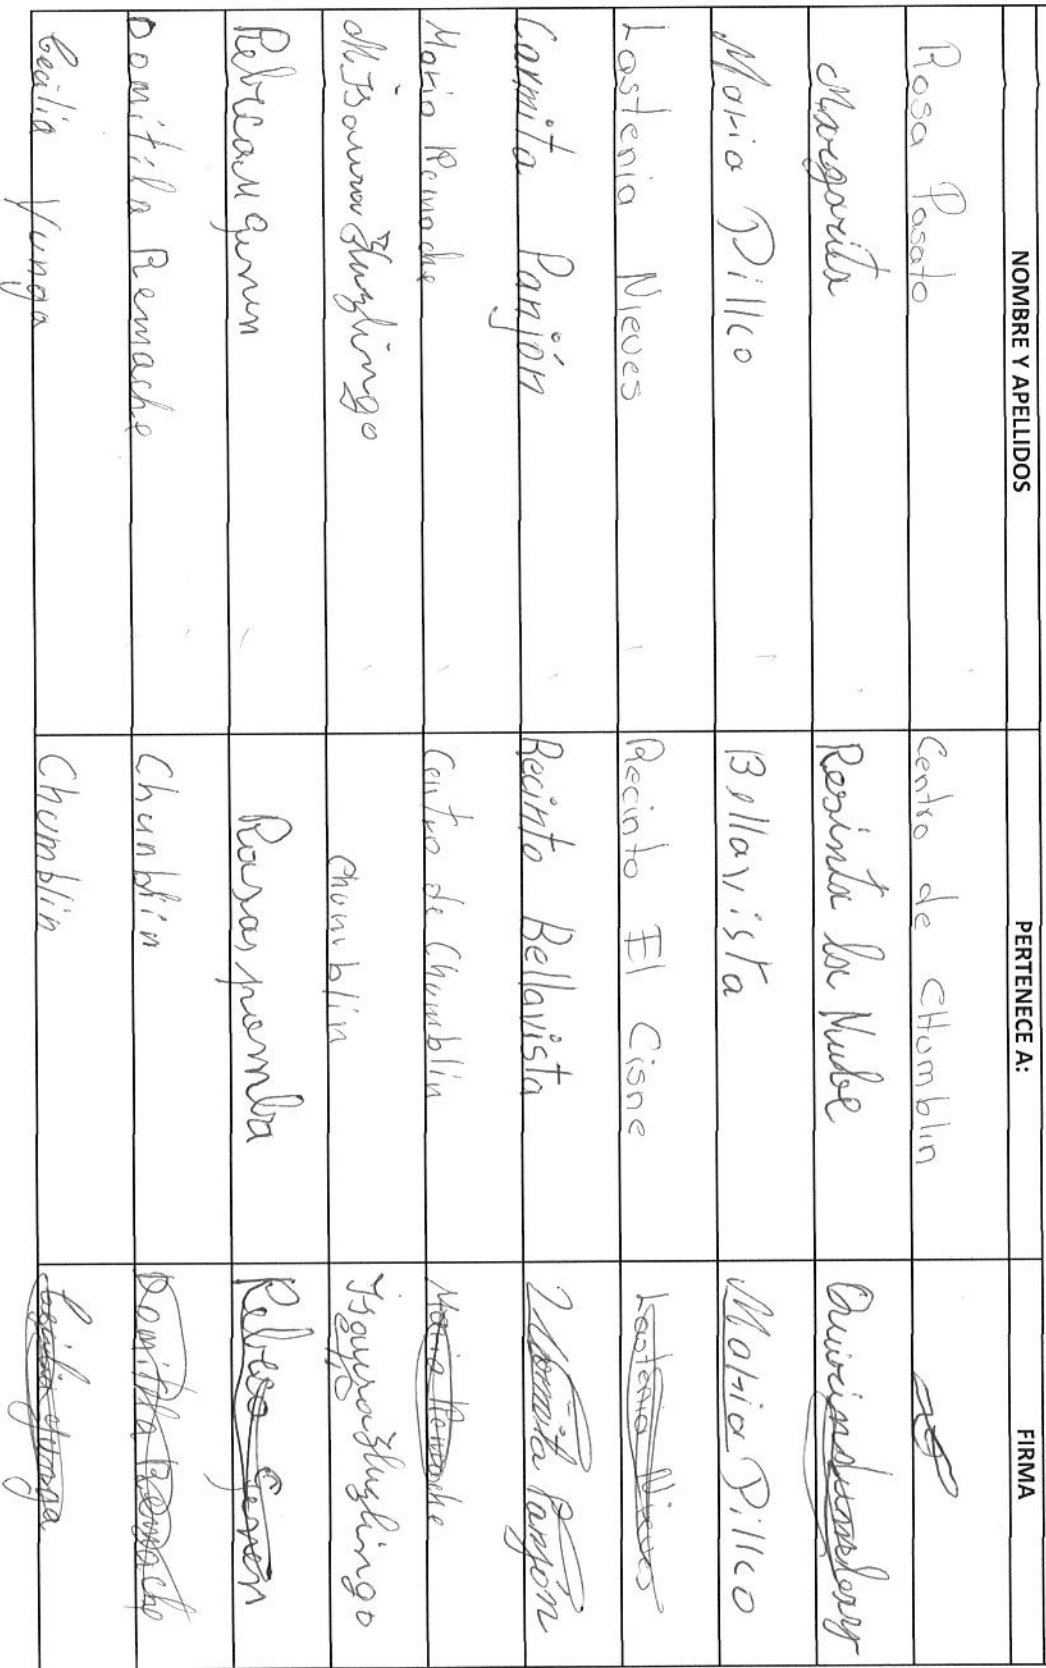 NOMBRE Y APELLIDOS PERTENECE A: FIRMA
Rosa Pasato Centro de CHumblin
Margarita Resinta la Nube
Maria Pillco Bellavista Maria Pillco
Lastenia Nieves Recinto El Cisne Lastenia Nieves
Carmita Panjón Recinto Bellavista Carmita Panjón
Maria Remache Centro de Chumblin Maria Remache
M. Isaura Chumblin Isaura
Rebeca Rebeca
Domitila Remache Chunblin Domitila Remache
Cecilia Yunga Chumblin Cecilia Yunga